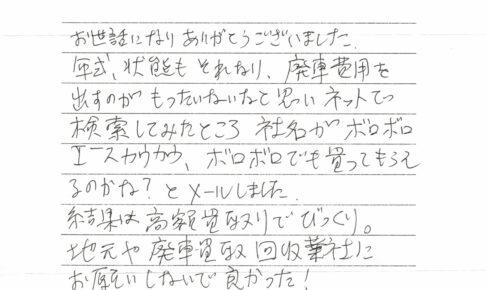 お世話になりありがとうございました.
年式、状態もそれなり、廃車費用を
出すのがもったいないなと思いネットで
検索してみたところ 社名がボロボロ
エースカウカウ、ボロボロでも買ってもらえ
るのかな?とメールしました.
結果は高額買取りでびっくり。
地元や廃車買取回収業社に
お願いしないで良かった!